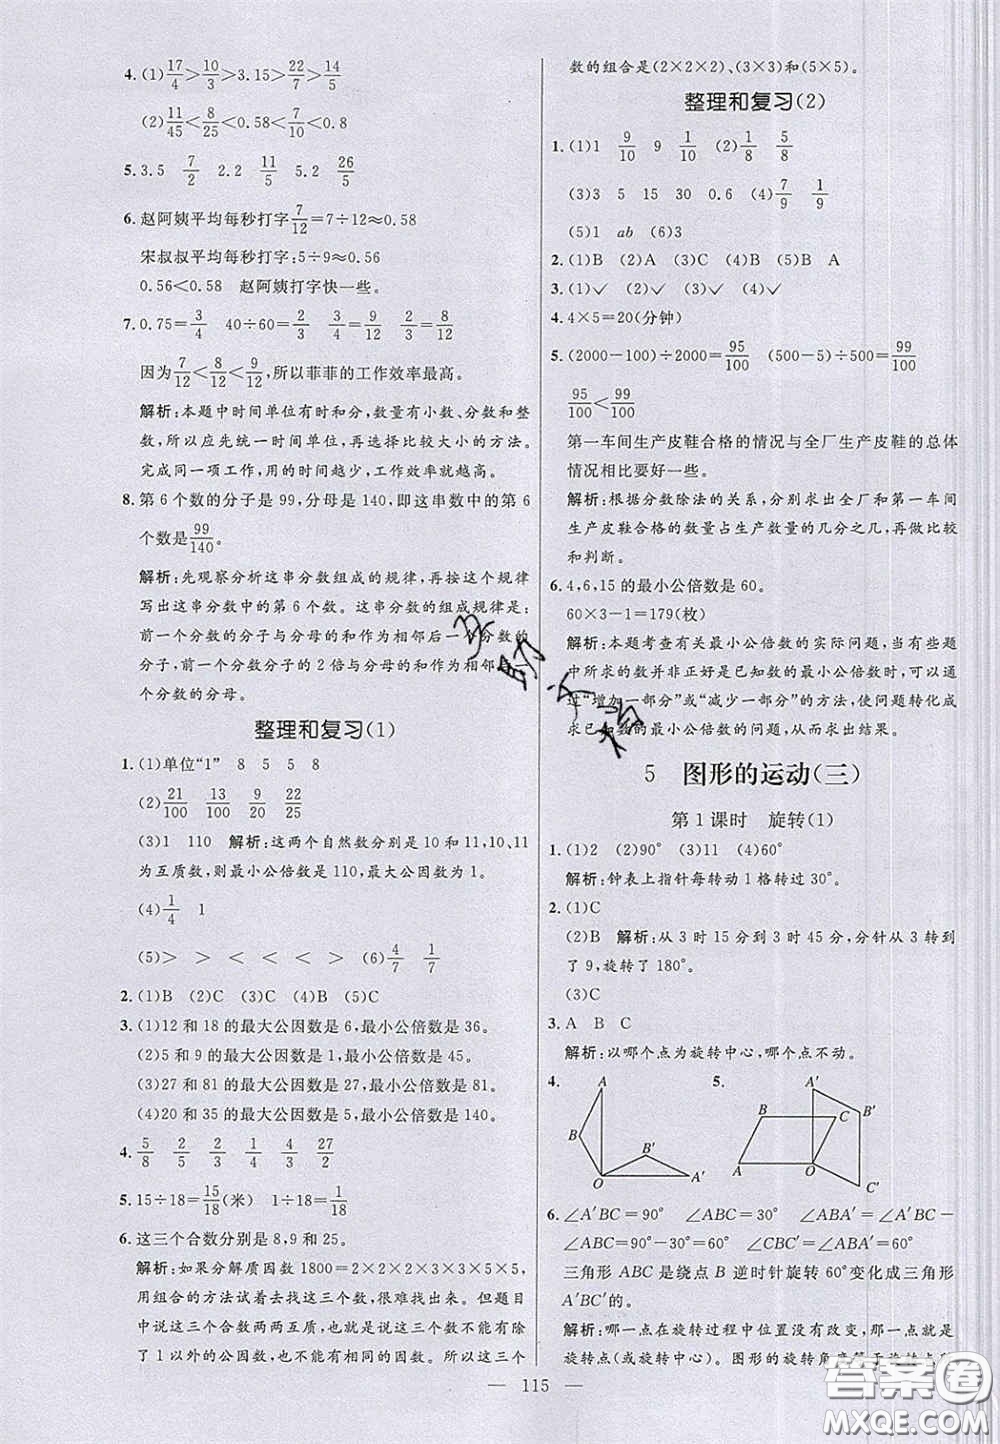 4.(1)17/4>10/3>3.15>22/7>14/5
(2)11/45<8/25<0.58<7/10<0.8
5.3.5 7/2 2.2 11/5 26/5
6.赵阿姨平均每秒打字7/12=7÷12≈0.58
宋叔叔平均每秒打字:5÷9≈0.56
0.56<0.58 赵阿姨打字快一些。
7.0.75=3/4 40÷60=2/3 3/4=9/12 2/3=8/12
因为7/12<8/12<9/12,所以菲菲的工作效率最高。
解析:本题中时间单位有时和分,数量有小数、分数和整
数,所以应先统一时间单位,再选择比较大小的方法。
完成同一项工作,用的时间越少,工作效率就越高。
8.第6个数的分子是99,分母是140,即这串数中的第6
个数是99/140。
解析:先观察分析这串分数组成的规律,再按这个规律
写出这串分数中的第6个数。这串分数的组成规律是:
前一个分数的分子与分母的和作为相邻后一个分数的
分子,前一个分数分子的2倍与分母的和作为相邻后一
个分数的分母。
整理和复习(1)
1.(1)单位“1” 8 5 5 8
(2)21/100 13/100 9/20 22/25
(3)1 110 解析:这两个自然数分别是10和11,10、11
为互质数,则最小公倍数是110,最大公因数是1。
(4)1/4 1
(5)> > < < < > (6)4/7 4/7
2.(1)B (2)C (3)C (4)B (5)C
3.(1)12和18的最大公因数是6,最小公倍数是36。
(2)5和9的最大公因数是1,最小公倍数是45。
(3)27和81的最大公因数是27,最小公倍数是81。
(4)20和35的最大公因数是5,最小公倍数是140。
4.5/8 2/5 2/3 1/4 1/3 27/2
5.15÷18=15/18(米) 1÷18=1/18
6.这三个合数分别是8,9和25。
解析:如果分解质因数1800=2×2×2×3×3×5×5,
用组合的方法试着去找这三个数,很难找出来。但题
目中说这三个合数两两互质,就是说这三个数不能有除
了1以外的公因数,也不能有相同的因数。所以这三个
数的组合是(2×2×2)、(3×3)和(5×5)。
整理和复习(2)
1.(1)1 9/10 9 1/10 (2)1/8 5/8
(3)3 5 15 30 0.6 (4)7/9 1/9
(5)1 ab (6)3
2.(1)B (2)A (3)C (4)C (5)B A
3.(1)✓ (2)✓ (3)✓ (4)✓
4.4×5=20(分钟)
5.(2000-100)÷2000=95/100 (500-5)÷500=99/100
95/100<99/100
第一车间生产皮鞋合格的情况与全厂生产皮鞋的总体
情况相比要好一些。
解析:根据分数除法的关系,分别求出全厂和第一车间
生产皮鞋合格的数量占生产数量的几分之几,再做比较
和判断。
6.4,6,15的最小公倍数是60。
60×3-1=179(枚)
解析:本题考查有关最小公倍数的实际问题,当有些题
中所求的数并非正好是已知数的最小公倍数时,可以通
过“增加一部分”或“减少一部分”的方法,使问题转化成
求已知数的最小公倍数的问题,从而求出结果。
5 图形的运动(三)
第1课时 旋转(1)
1.(1)2 (2)90° (3)11 (4)60°
解析:钟表上指针每转动1格转过30°。
2.(1)C
(2)B 解析:从3时15分到3时45分,分针从3转到
了9,旋转了180°。
(3)C
3.A B C
解析:以哪个点为旋转中心,哪个点不动。
4. A B B′ O A′
5. A′ B′ B C A O C′
6.∠A′BC=90° ∠ABC=30° ∠ABA′=∠A′BC-
∠ABC=90°-30°=60° ∠CBC′=∠ABA′=60°
三角形ABC是绕点B逆时针旋转60°变化成三角形
A′BC′的。
解析:哪一点在旋转过程中位置没有改变,那一点就是
旋转点(或旋转中心)。图形的旋转角度等于旋转点所
115
答案圈
MXQE.COM